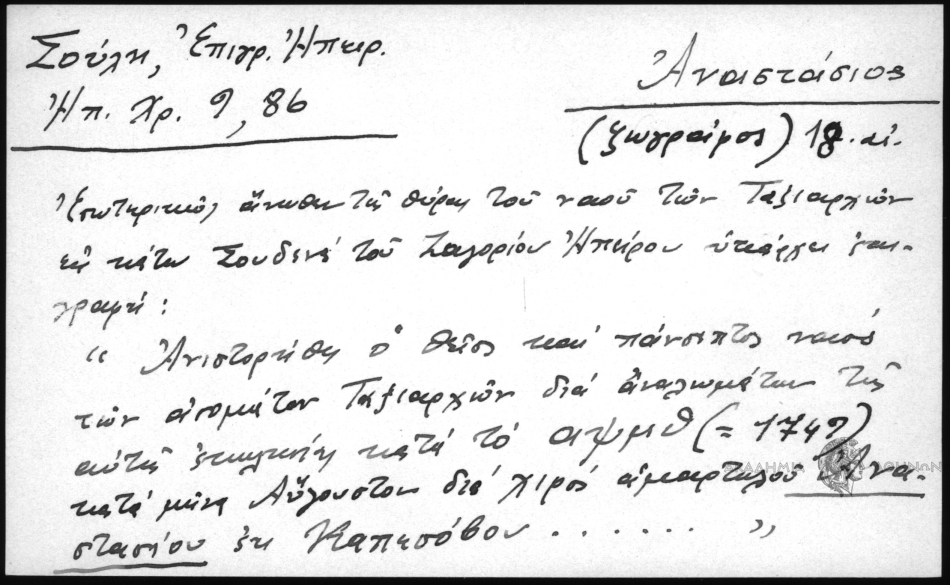 Σούλη, Ἐπιγρ. Ἠπειρ.
Ἠπ. Χρ. 9, 86
Ἀναστάσιος
(ζωγράφος) 18. αἰ.
Ἐσωτερικῶς ἄνωθεν τῆς θύρας τοῦ ναοῦ τῶν Ταξιαρχῶν
εἰς κάτω Σουδενά τοῦ Ζαγορίου Ἠπείρου ὑπάρχει ἐπι-
γραφή:
“ Ἀνιστορήθη ὁ θεῖος καί πάνσεπτος ναός
τῶν ἀσομάτον Ταξιαρχῶν διά ἀναλωμάτων τῆς
αὐτῆς ἐκκλησίας κατά τό αψμθ (= 1749)
κατά μῆνα Αὔγουστον διά χειρός ἁμαρτωλοῦ Ἀνα-
στασίου ἐκ Καπεσόβου . . . . . . ”
ΑΘΗΝΩΝ